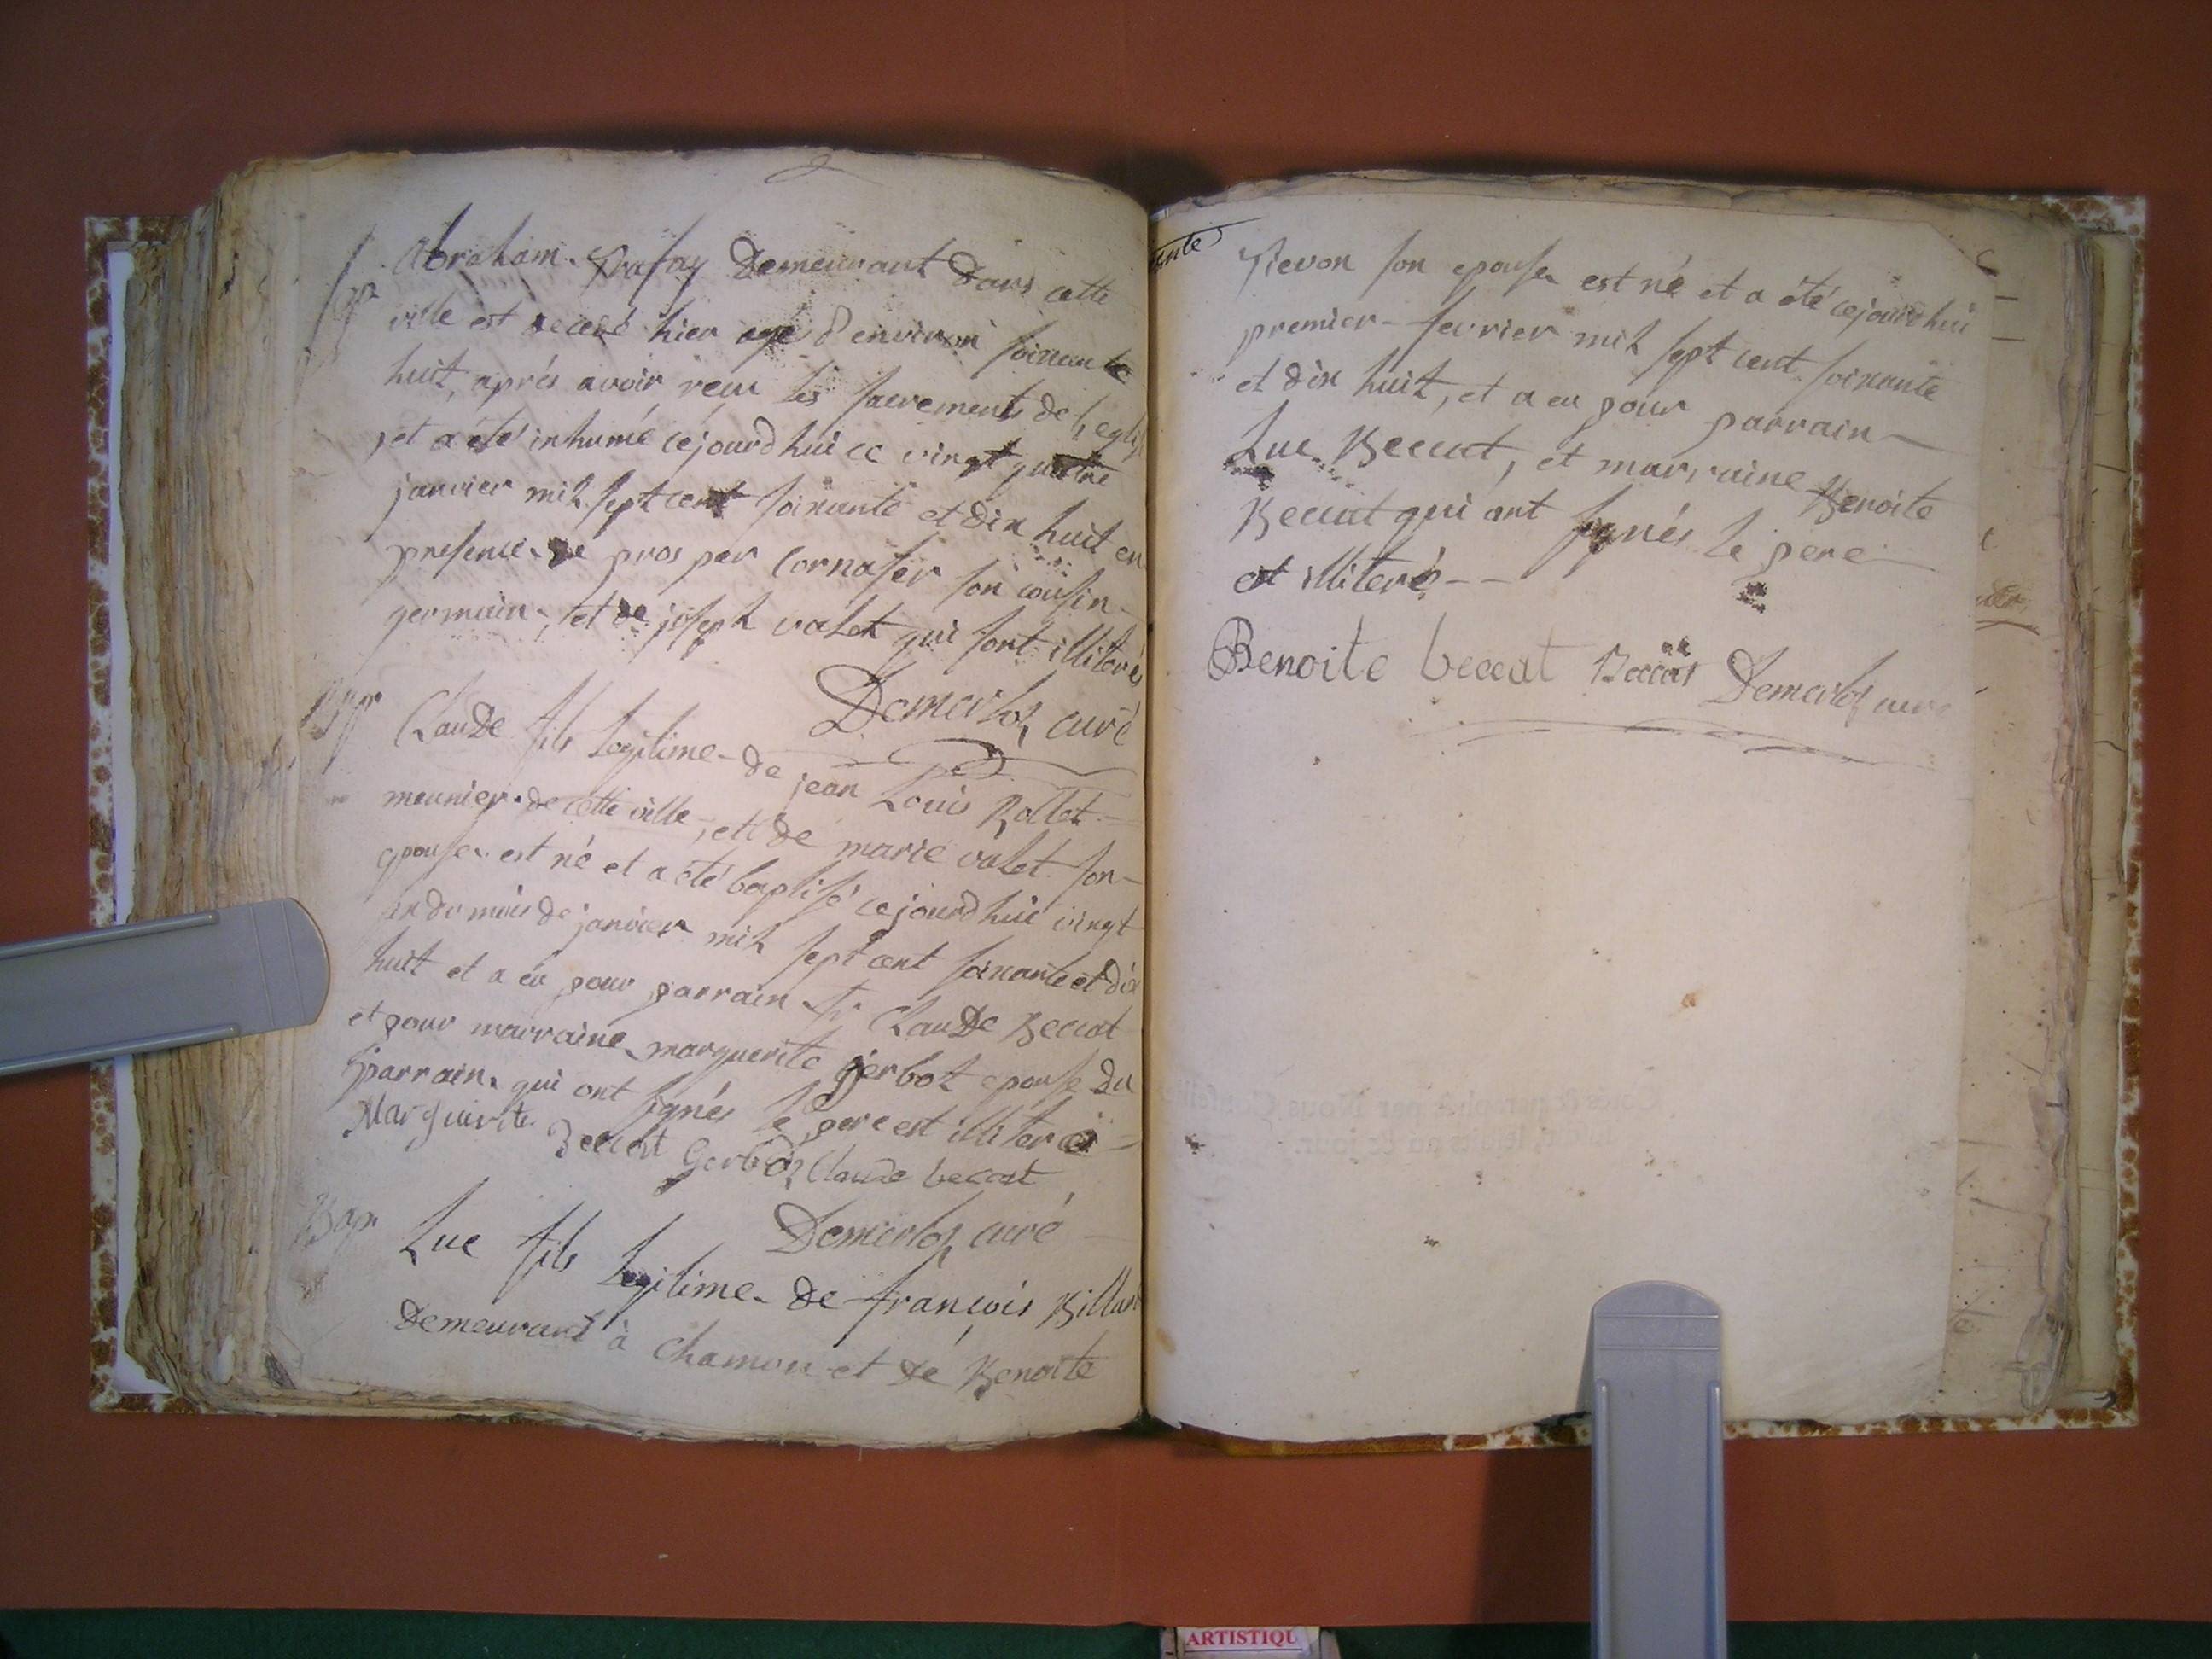 Sep.
Abraham Demeurant Dans cette
ville est decedé hier agé d'environ soixante
huit, aprés avoir recu les sacrements de l'eglise
et a été inhumé cejourd'hui ce vingt quatre
janvier mil sept cent soixante et dix huit en
presence de prosper Cornaser son cousin
germain, et de joseph valet qui sont illiterés
Demerloz curé
Bap.
Claude fils legitime de jean Louis Rollet
meunier de cette ville, et de marie valet son
epouse est né et a été baptisé cejourd'hui vingt
un du mois de janvier mil sept cent soixante et dix
huit et a eu pour parrain Sr Claude Beccat
et pour marraine marguerite gerboz epouse du
parrain qui ont signés le pere est illiteré
Marguirite Beccat Gerboz Claude beccat
Demerloz curé
Bap.
Luc fils legitime de françois Billan
Demeurant à Chamou et de Benoite
Pievon son epouse est né et a été cejourd'hui
premier fevrier mil sept cent soixante
et dix huit, et a eu pour parrain
Luc Beccat, et marraine Benoite
Beccat qui ont signés le pere
est illiteré
Benoite beccat Beccat Demerloz curé
ARTISTIQU